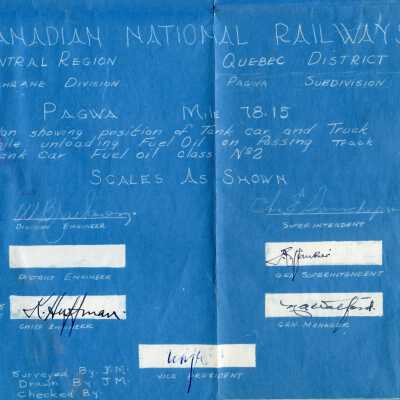 ANADIAN NATIONAL RAILWAYS
NTRAL REGION QUEBEC DISTRICT
CHRANE DIVISION PAGWA SUBDIVISION
PAGWA MILE 78.15
an showing position of Tank car and Truck
ile unloading Fuel Oil on Passing Track
ank Car Fuel oil class No2
SCALES AS SHOWN
DIVISION ENGINEER SUPERINTENDENT
DISTRICT ENGINEER GEN SUPERINTENDENT
K. Huffman.
CHIEF ENGINEER GEN MANAGER
VICE PRESIDENT
Surveyed By J.M.
Drawn By J.M.
Checked By